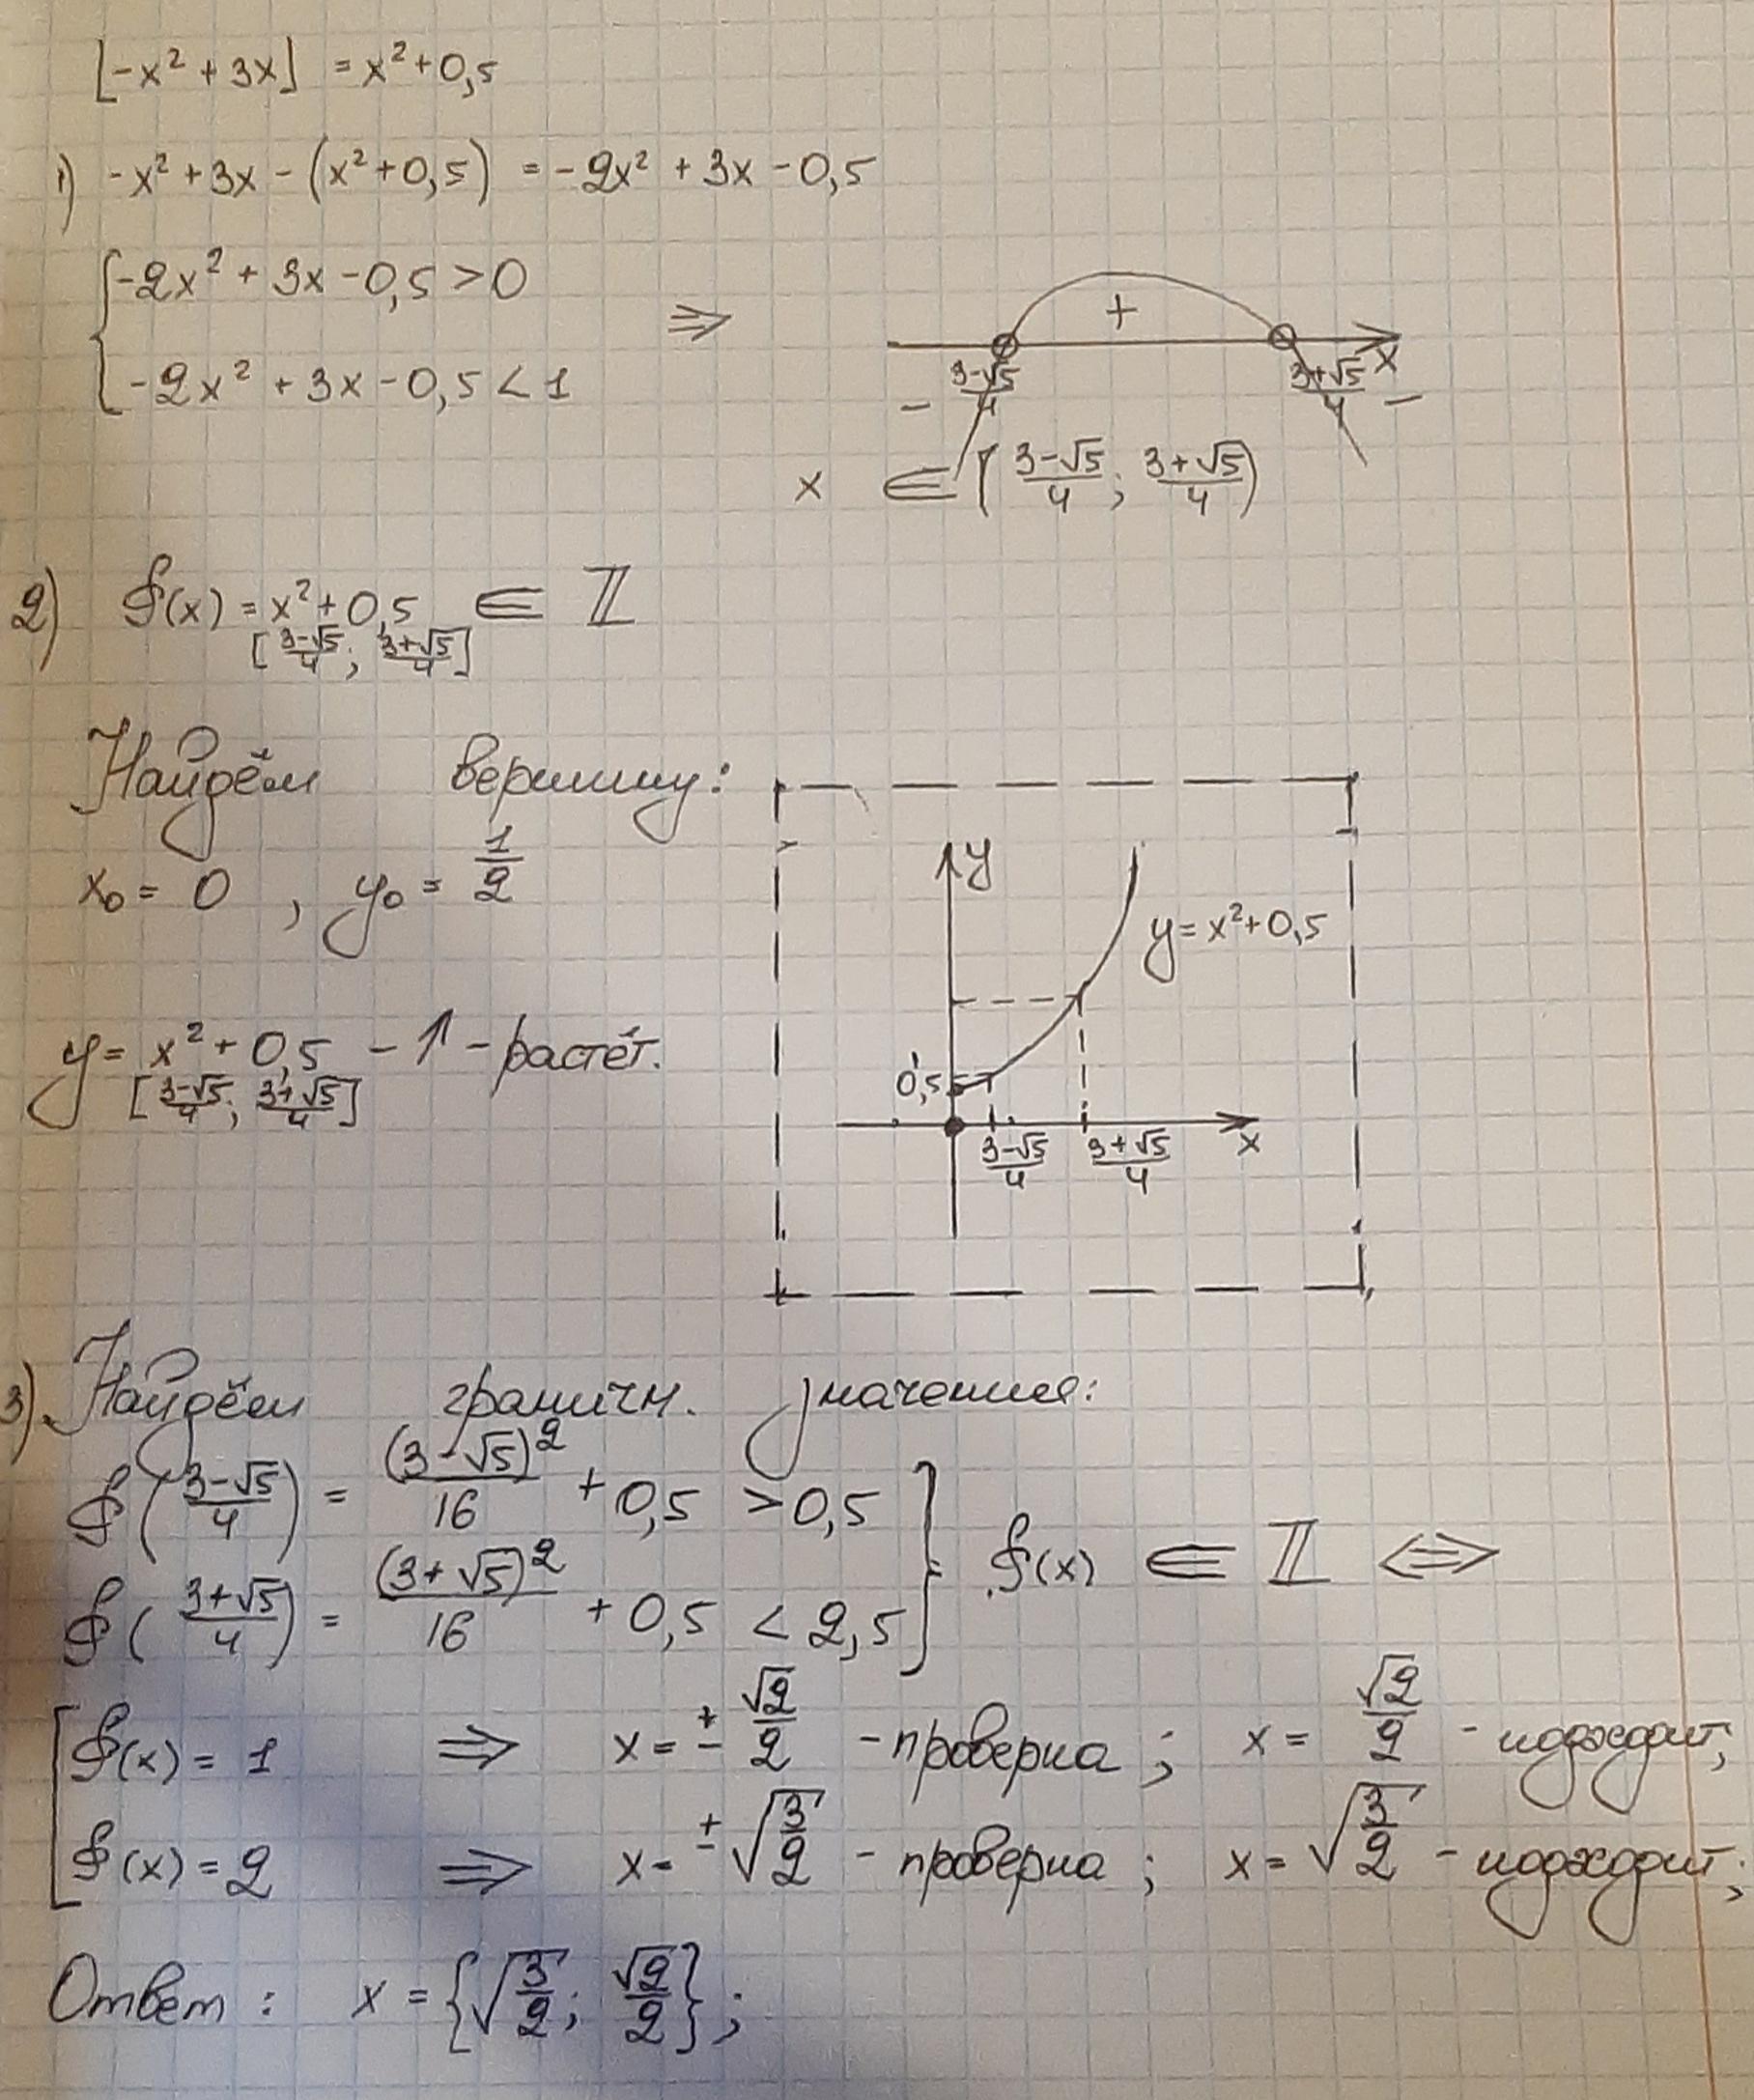 ⌊-x² + 3x⌋ = x² + 0,5
1) -x² + 3x - (x² + 0,5) = -2x² + 3x - 0,5
{ -2x² + 3x - 0,5 > 0
{ -2x² + 3x - 0,5 < 1
⇒
+
(3-√5)/4 (3+√5)/4 x
- -
x ∈ ((3-√5)/4; (3+√5)/4)
2) f(x) = x² + 0,5 ∈ ℤ
[(3-√5)/4; (3+√5)/4]
Найдём вершину:
x₀ = 0, y₀ = 1/2
y
y = x² + 0,5
0,5
(3-√5)/4 (3+√5)/4 x
y = x² + 0,5 - ↑ - растёт.
[(3-√5)/4; (3+√5)/4]
3). Найдём граничн. значения:
f((3-√5)/4) = (3-√5)²/16 + 0,5 > 0,5
f((3+√5)/4) = (3+√5)²/16 + 0,5 < 2,5
} f(x) ∈ ℤ ⇔
[ f(x) = 1 ⇒ x = ± √2/2 - проверка; x = √2/2 - подходит;
[ f(x) = 2 ⇒ x = ± √(3/2) - проверка; x = √(3/2) - подходит;
Ответ: x = {√(3/2); √2/2};